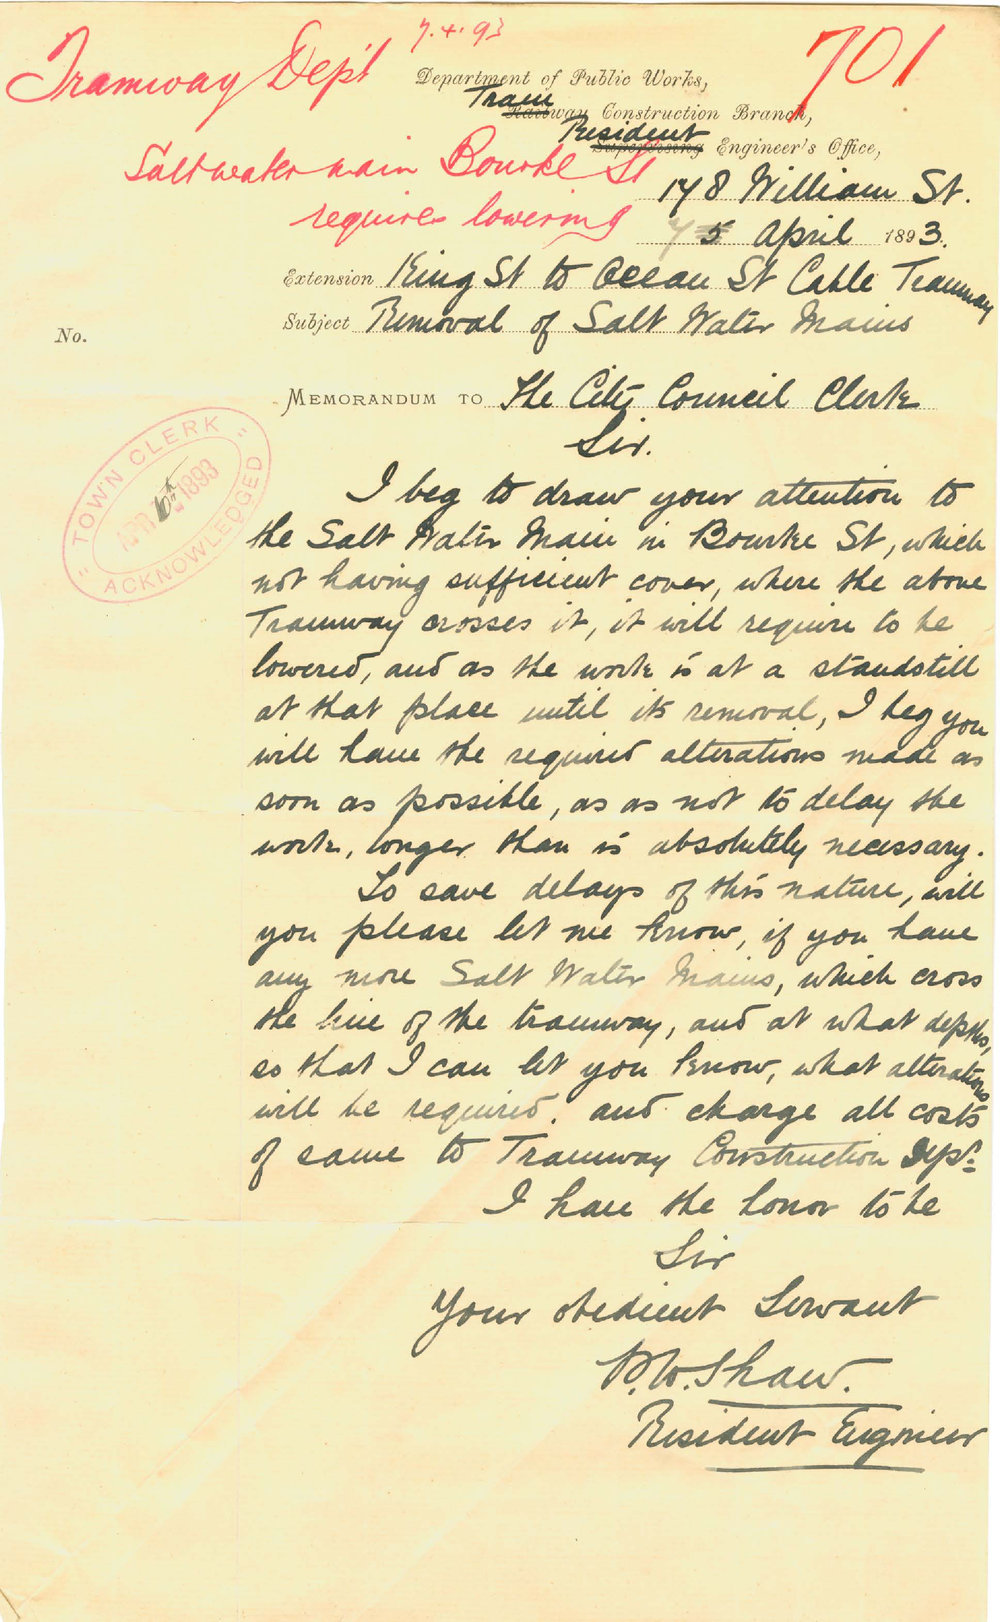 7.4.93
701
Tramway Dep't
Department of Public Works,
Tram
Railway Construction Branch,
Resident
Supervising Engineer's Office,
Saltwater main Bourke St
requires lowering
178 William St.
5 April 1893.
Extension King St to Ocean St Cable Tramway
Subject Removal of Salt Water Mains
No.
MEMORANDUM TO The City Council Clerk
"TOWN CLERK"
APR 10th 1893
ACKNOWLEDGED
Sir.
I beg to draw your attention to
the Salt Water Main in Bourke St, which
not having sufficient cover, where the above
Tramway crosses it, it will require to be
lowered, and as the work is at a standstill
at that place until its removal, I beg you
will have the required alterations made as
soon as possible, as as not to delay the
work, longer than is absolutely necessary.
To save delays of this nature, will
you please let me know, if you have
any more Salt Water Mains, which cross
the line of the tramway, and at what depths,
so that I can let you know, what alterations
will be required. and charge all costs
of same to Tramway Construction Dept.
I have the honor to be
Sir
Your obedient Servant
P.W. Shaw.
Resident Engineer